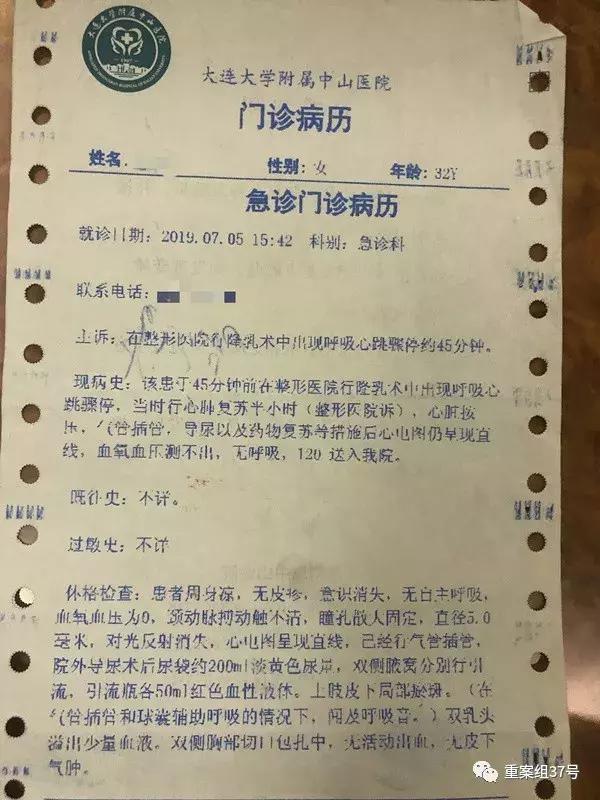 大连大学附属中山医院
门诊病历
姓名: 性别: 女 年龄: 32Y
急诊门诊病历
就诊日期: 2019.07.05 15:42 科别: 急诊科
联系电话:
主诉: 在整形医院行隆乳术中出现呼吸心跳骤停约45分钟。
现病史: 该患于45分钟前在整形医院行隆乳术中出现呼吸心
跳骤停, 当时行心肺复苏半小时(整形医院诉), 心脏按
压, 气管插管, 导尿以及药物复苏等措施后心电图仍呈现直
线, 血氧血压测不出, 无呼吸, 120 送入我院。
既往史: 不详。
过敏史: 不详
体格检查: 患者周身凉, 无皮疹, 意识消失, 无自主呼吸,
血氧血压为0, 颈动脉搏动触不清, 瞳孔散大固定, 直径5.0
毫米, 对光反射消失, 心电图呈现直线, 已经行气管插管,
院外导尿术后尿袋约200ml淡黄色尿液, 双侧腋窝分别行引
流, 引流瓶各50ml红色血性液体。上肢皮下局部瘀斑。(在
气管插管和球囊辅助呼吸的情况下, 闻及呼吸音。)双乳头
溢出少量血液。双侧胸部切口包扎中, 无活动出血, 无皮下
气肿。
重案组37号